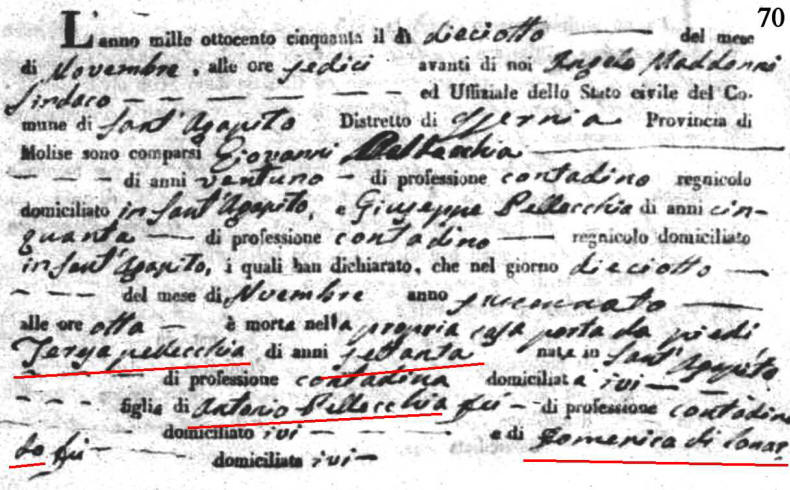 70
L'anno mille ottocento cinquanta il dì dieciotto del mese
di Novembre, alle ore sedici avanti di noi Angelo Maddonni
Sindaco ed Uffiziale dello Stato civile del Co-
mune di Sant'Agapito Distretto di Isernia Provincia di
Molise sono comparsi Giovanni Pellecchia
di anni ventuno di professione contadino regnicolo
domiciliato in Sant'Agapito, e Giuseppe Pellecchia di anni cin-
quanta di professione contadino regnicolo domiciliato
in Sant'Agapito, i quali han dichiarato, che nel giorno dieciotto
del mese di Nvembre anno succennato
alle ore otto è morta nella propria casa porta da piedi
Teresa pellecchia di anni settanta nata in Sant'Agapito
di professione contadina domiciliata ivi
figlia di Antonio Pellecchia fù di professione contadino
domiciliato ivi e di Domenica di Lonar
do fù domiciliata ivi